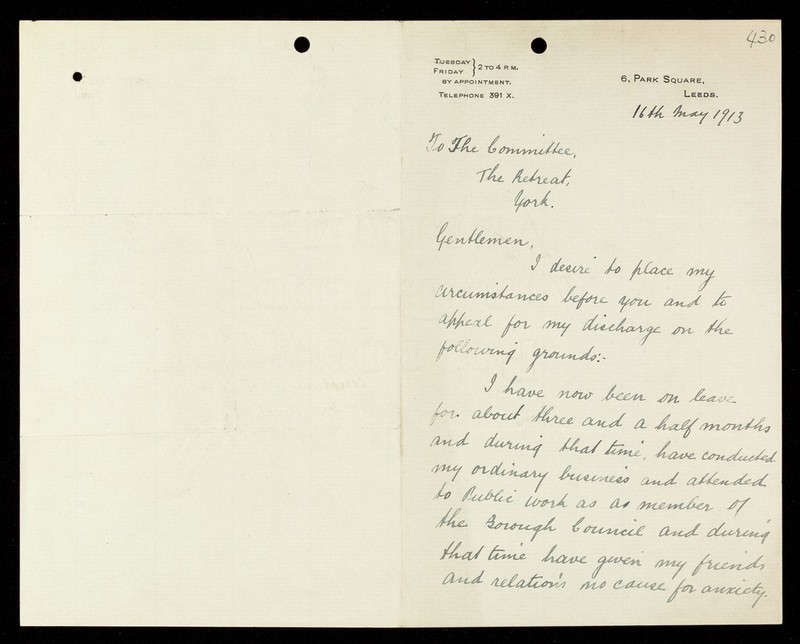 430
TUESDAY } 2 TO 4 P.M.
FRIDAY
BY APPOINTMENT.
TELEPHONE 391 X.
6, PARK SQUARE,
LEEDS.
16th May 1913
To The Committee,
The Retreat,
York.
Gentlemen,
I desire to place my
circumstances before you and to
appeal for my discharge on the
following grounds:-
I have now been on leave
for about three and a half months
and during that time, have conducted
my ordinary business and attended
to Public work as a member of
the Borough Council and during
that time have given my friends
and relations no cause for anxiety.